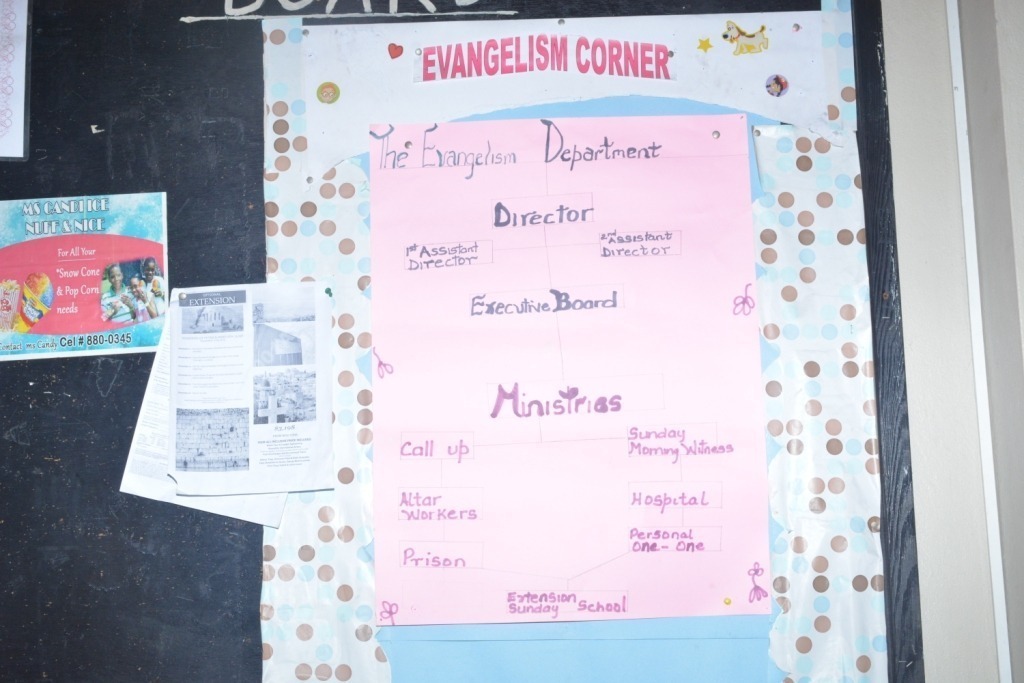 BOARD
EVANGELISM CORNER
The Evangelism Department
Director
1st Assistant
Director
2nd Assistant
Director
Executive Board
Ministries
Call up
Sunday
Morning Witness
Altar
Workers
Hospital
Prison
Personal
One-One
Extension
Sunday School
MS CANDI ICE
NUFF & NICE
For All Your
"Snow Cone
& Pop Corn
needs
Contact ms Candy Cel # 880-0345
EXTENSION